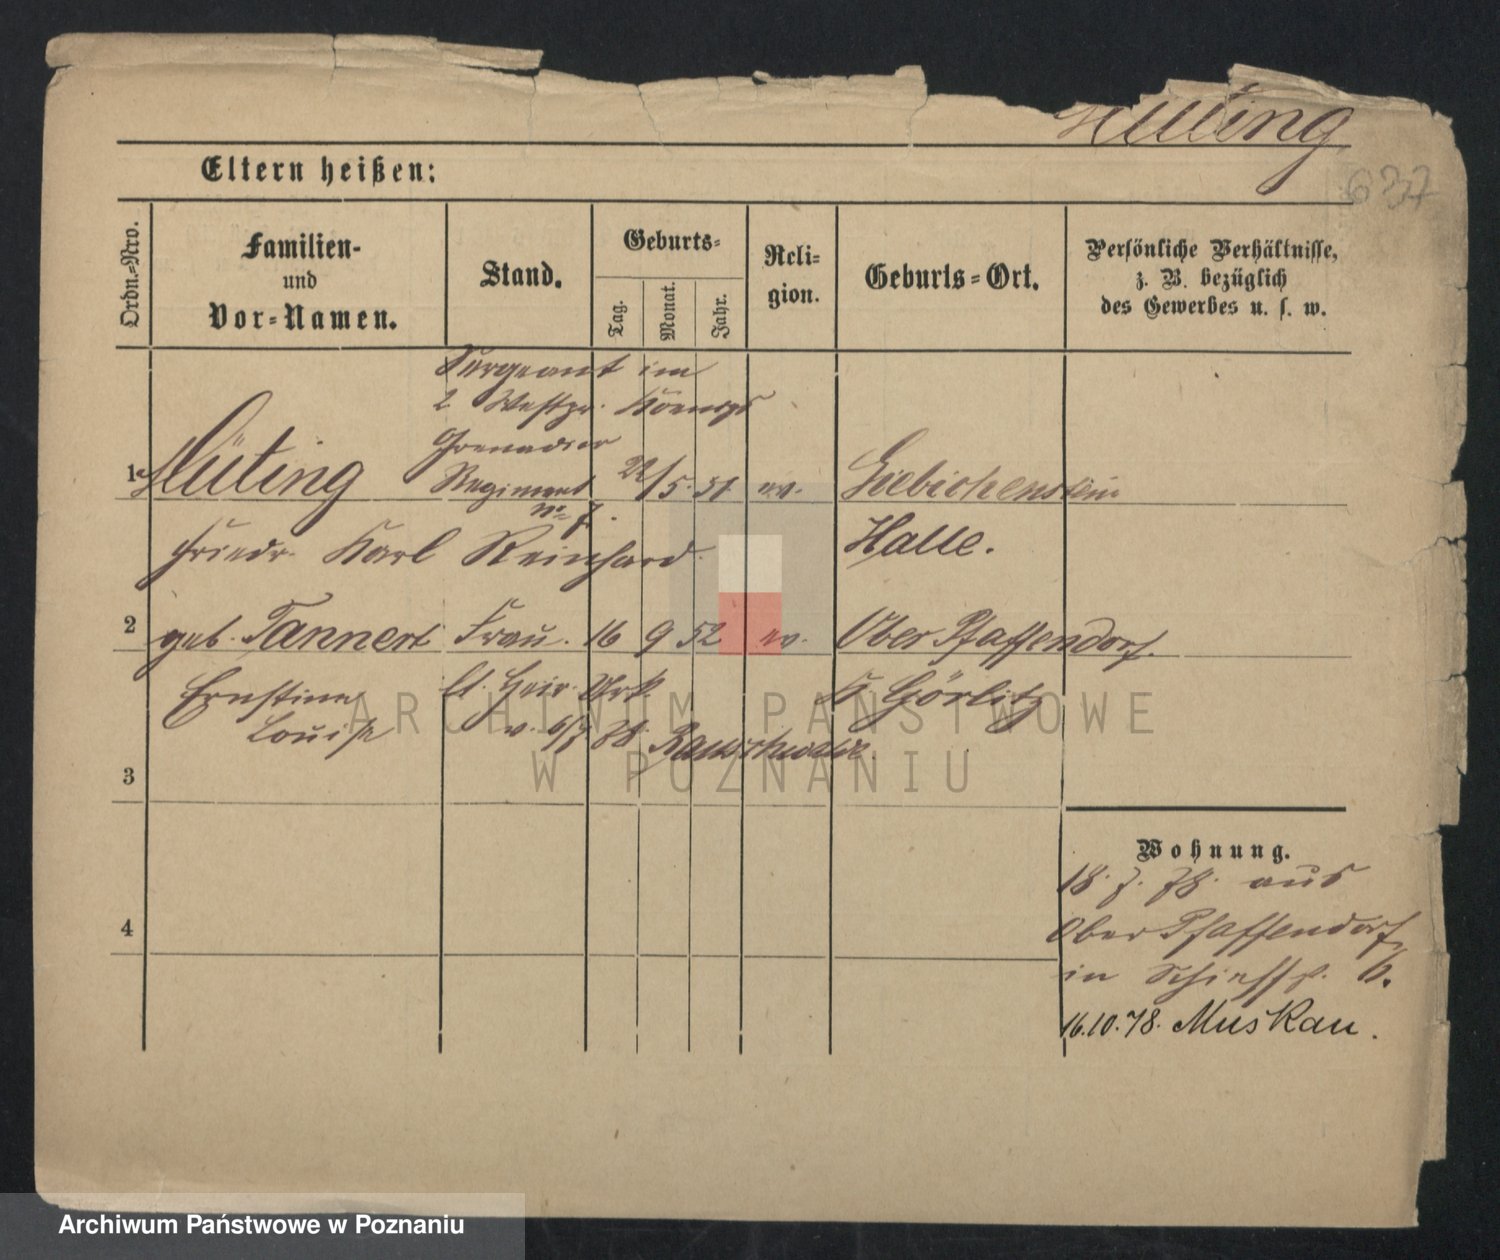 Hüting
637
Eltern heißen:
Ordn.-Nro.
Familien-
und
Vor-Namen.
Stand.
Geburts-
Tag.
Monat.
Jahr.
Reli-
gion.
Geburts-Ort.
Persönliche Verhältnisse,
z. B. bezüglich
des Gewerbes u. s. w.
Sergeant im
2 Westpr. Koenigs
Grenadier
1 Hüting Regiment 22/5. 51. ev. Giebichenstein
No 7.
Friedr. Karl Reinhard. Halle.
2 geb. Tannert Frau. 16 9 52 ev. Ober Pfaffendorf.
Ernstine lt. Heir. Urk. K Görlitz
Louise v. 6/7 78.
3
Wohnung.
18. 7. 78. aus
4 Ober Pfaffendorf,
in Schießst. 6.
16.10.78. Muskau.
ARCHIWUM PAŃSTWOWE
W POZNANIU
Archiwum Państwowe w Poznaniu